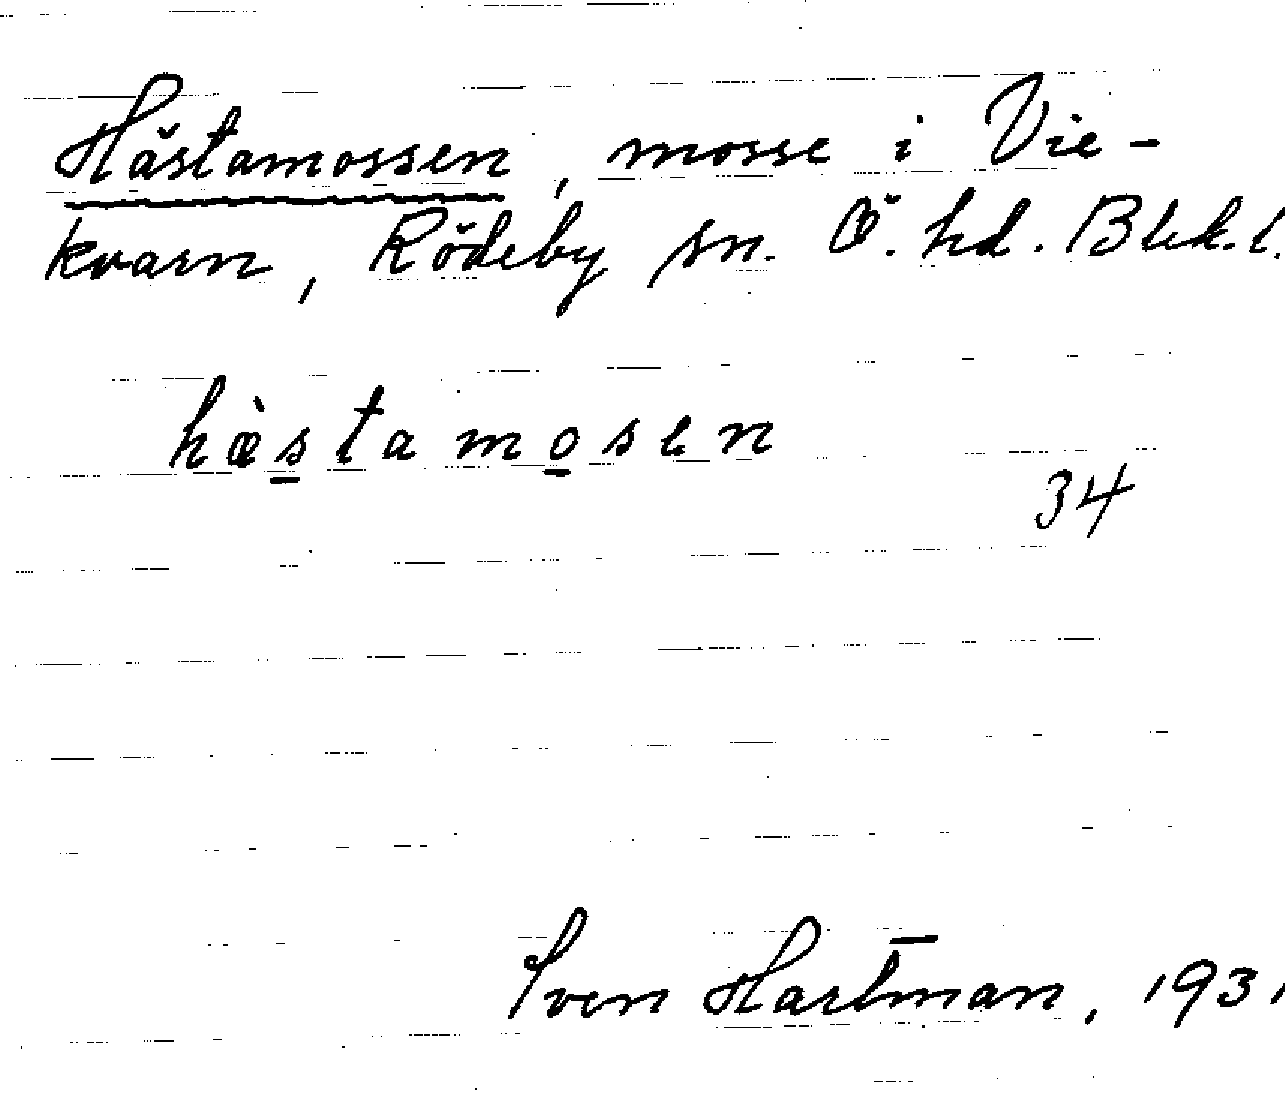 Hästamossen, mosse i Vie-
kvarn, Rödeby sn. Ö. hd. Blek. l.
hæ̀stamosen
34
Sven Hartman, 1931